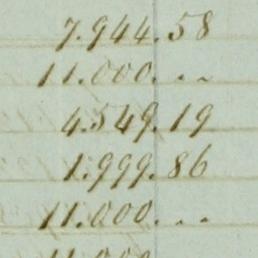 7.944.58
11.000. . ~
4.549.19
1.999.86
11.000. . .
11.000